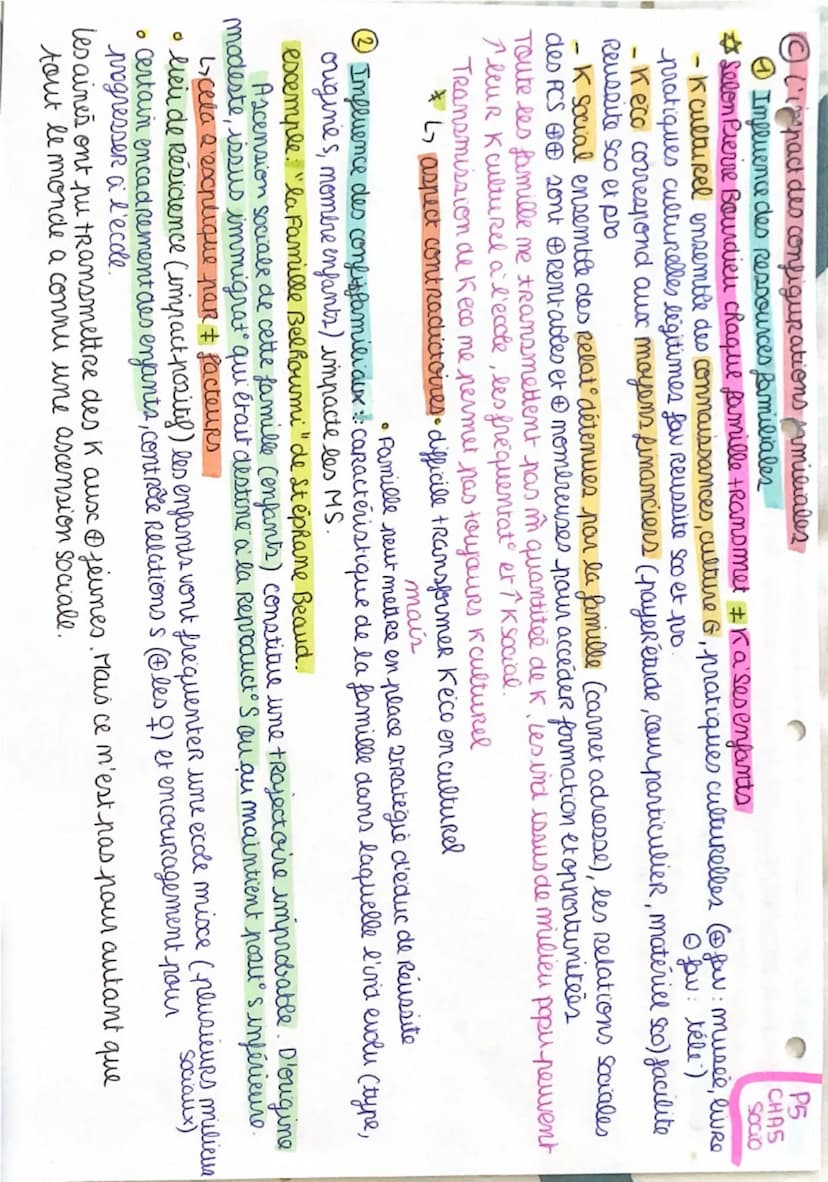 P5
CHA5
SOCIO
C) L'impact des configurations familiales
① Influence des ressources familiales
☆ Selon Pierre Bourdieu chaque famille transmet ≠ K à ses enfants
- K culturel ensemble des connaissances, culture G, pratiques culturelles (⊕ fav : musée, livre
⊖ fav : télé)
pratiques culturelles légitimes fav réussite sco et pro.
- K éco correspond aux moyens financiers (payer étude, cour particulier, matériel sco) facilite
réussite sco et pro
- K social ensemble des relat° détenues par la famille (carnet adresse), les relations sociales
des FCS ⊕⊕ sont ⊕ rentables et ⊕ nombreuses pour accéder formation et opportunitées
Toute les famille ne transmettent pas m̂ quantitée de K. Les ind issus de milieu popu peuvent
↑ leur K culturel à l'école, les fréquentat° et ↑ K social.
Transmission de K eco ne permet pas toujours K culturel
* ↳ aspect contradictoires • difficile transformer K éco en culturel
mais
• Famille peut mettre en place stratégie d'éduc de réussite
② Influence des conf familiaux : caractéristique de la famille dans laquelle l'ind evolu (type,
origines, nombre enfants) impacte les MS.
exemple : "la Famille Belhoumi" de Stéphane Beaud.
Ascension sociale de cette famille (enfants) constitue une trajectoire improbable. D'origine
modeste, issus immigrat° qui était destiné à la reproduct° S ou au maintient posit° S inférieure.
↳ cela s'explique par ≠ facteurs
• lieu de résidence (impact positif) les enfants vont fréquenter une école mixe (plusieurs milieux
sociaux)
• certain encadrement des enfants, contrôle relations S (⊕ les ♀) et encouragement pour
progresser à l'école.
Les ainés ont pu transmettre des K aux ⊕ jeunes. Mais ce n'est pas pour autant que
tout le monde a connu une ascension sociale.